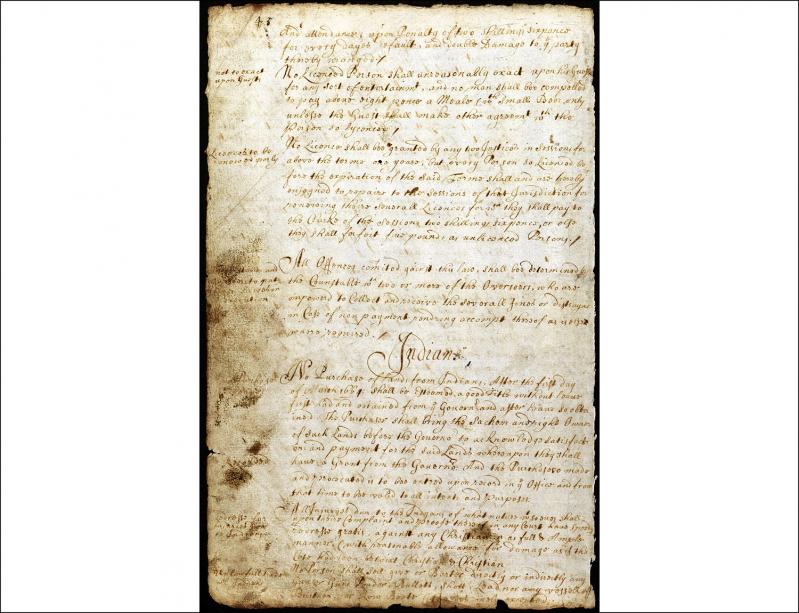 43
And attendance; upon Penalty of two shillings sixpence
for every dayes default, and double Damage to ye party
thereby wronged /
not to exact
upon Guests
No Licenced Person shall unreasonably exact upon his Guest
for any sort of entertainmt, and no man shall bee compelled
to pay above eight pence a Meale wth Small Beer only
unlesse the Guest shall make other agreemt wth the
Person so Lycenced /
Licences to be
renewed yearly
No Licence shall bee granted by any two Justices in Sessions for
above the terme one yeare, but every Person so Licenced be
fore the expiration of the said Terme shall and are hereby
enjoyned to repaire to the Sessions of that Jurisdiction for
renewing their severall Licences for wch they shall pay to
the Clarke of the Sessions two shillings sixpence, or else
they shall forfeit five pounds as unlicenced Persons /
All Offences comitted against this law, shall bee determined by
the Constable wth two or more of the Overseers, who are
impowred to Collect and receive the severall fines or distrayne
in Case of non payment rendring accompt thereof as is else
where required.
Indians
Purchase
No Purchase of Lands from Indians, After the first day
of March 1664 shall be Esteemed a good Title without Leave
first had and obtained from ye Governr and after Leave so obtai
ned The Purchaser shall bring the Sachem and right Owner
of such Lands before the Governr to acknowledge Satisfacti
on and payment for the said Lands whereupon they shall
have a Grant from the Governr And the Purchase so made
and prosecuted is to bee entred upon record in ye Office and from
that time to bee valid to all intents and purposes
All Injuryes done to the Indyans of what nature whatsoever shall
upon their Complaint and proofe thereof in any Court have speedy
redresse gratis, against any Christian in as full & Ample
manner (with reasonable allowance for damage) as if the
Case had been betwixt Christian & Christian
No Person shall sell give or Barter directly or indirectly any
Gunn Powder Bullett, Shott, Lead nor any vessell of